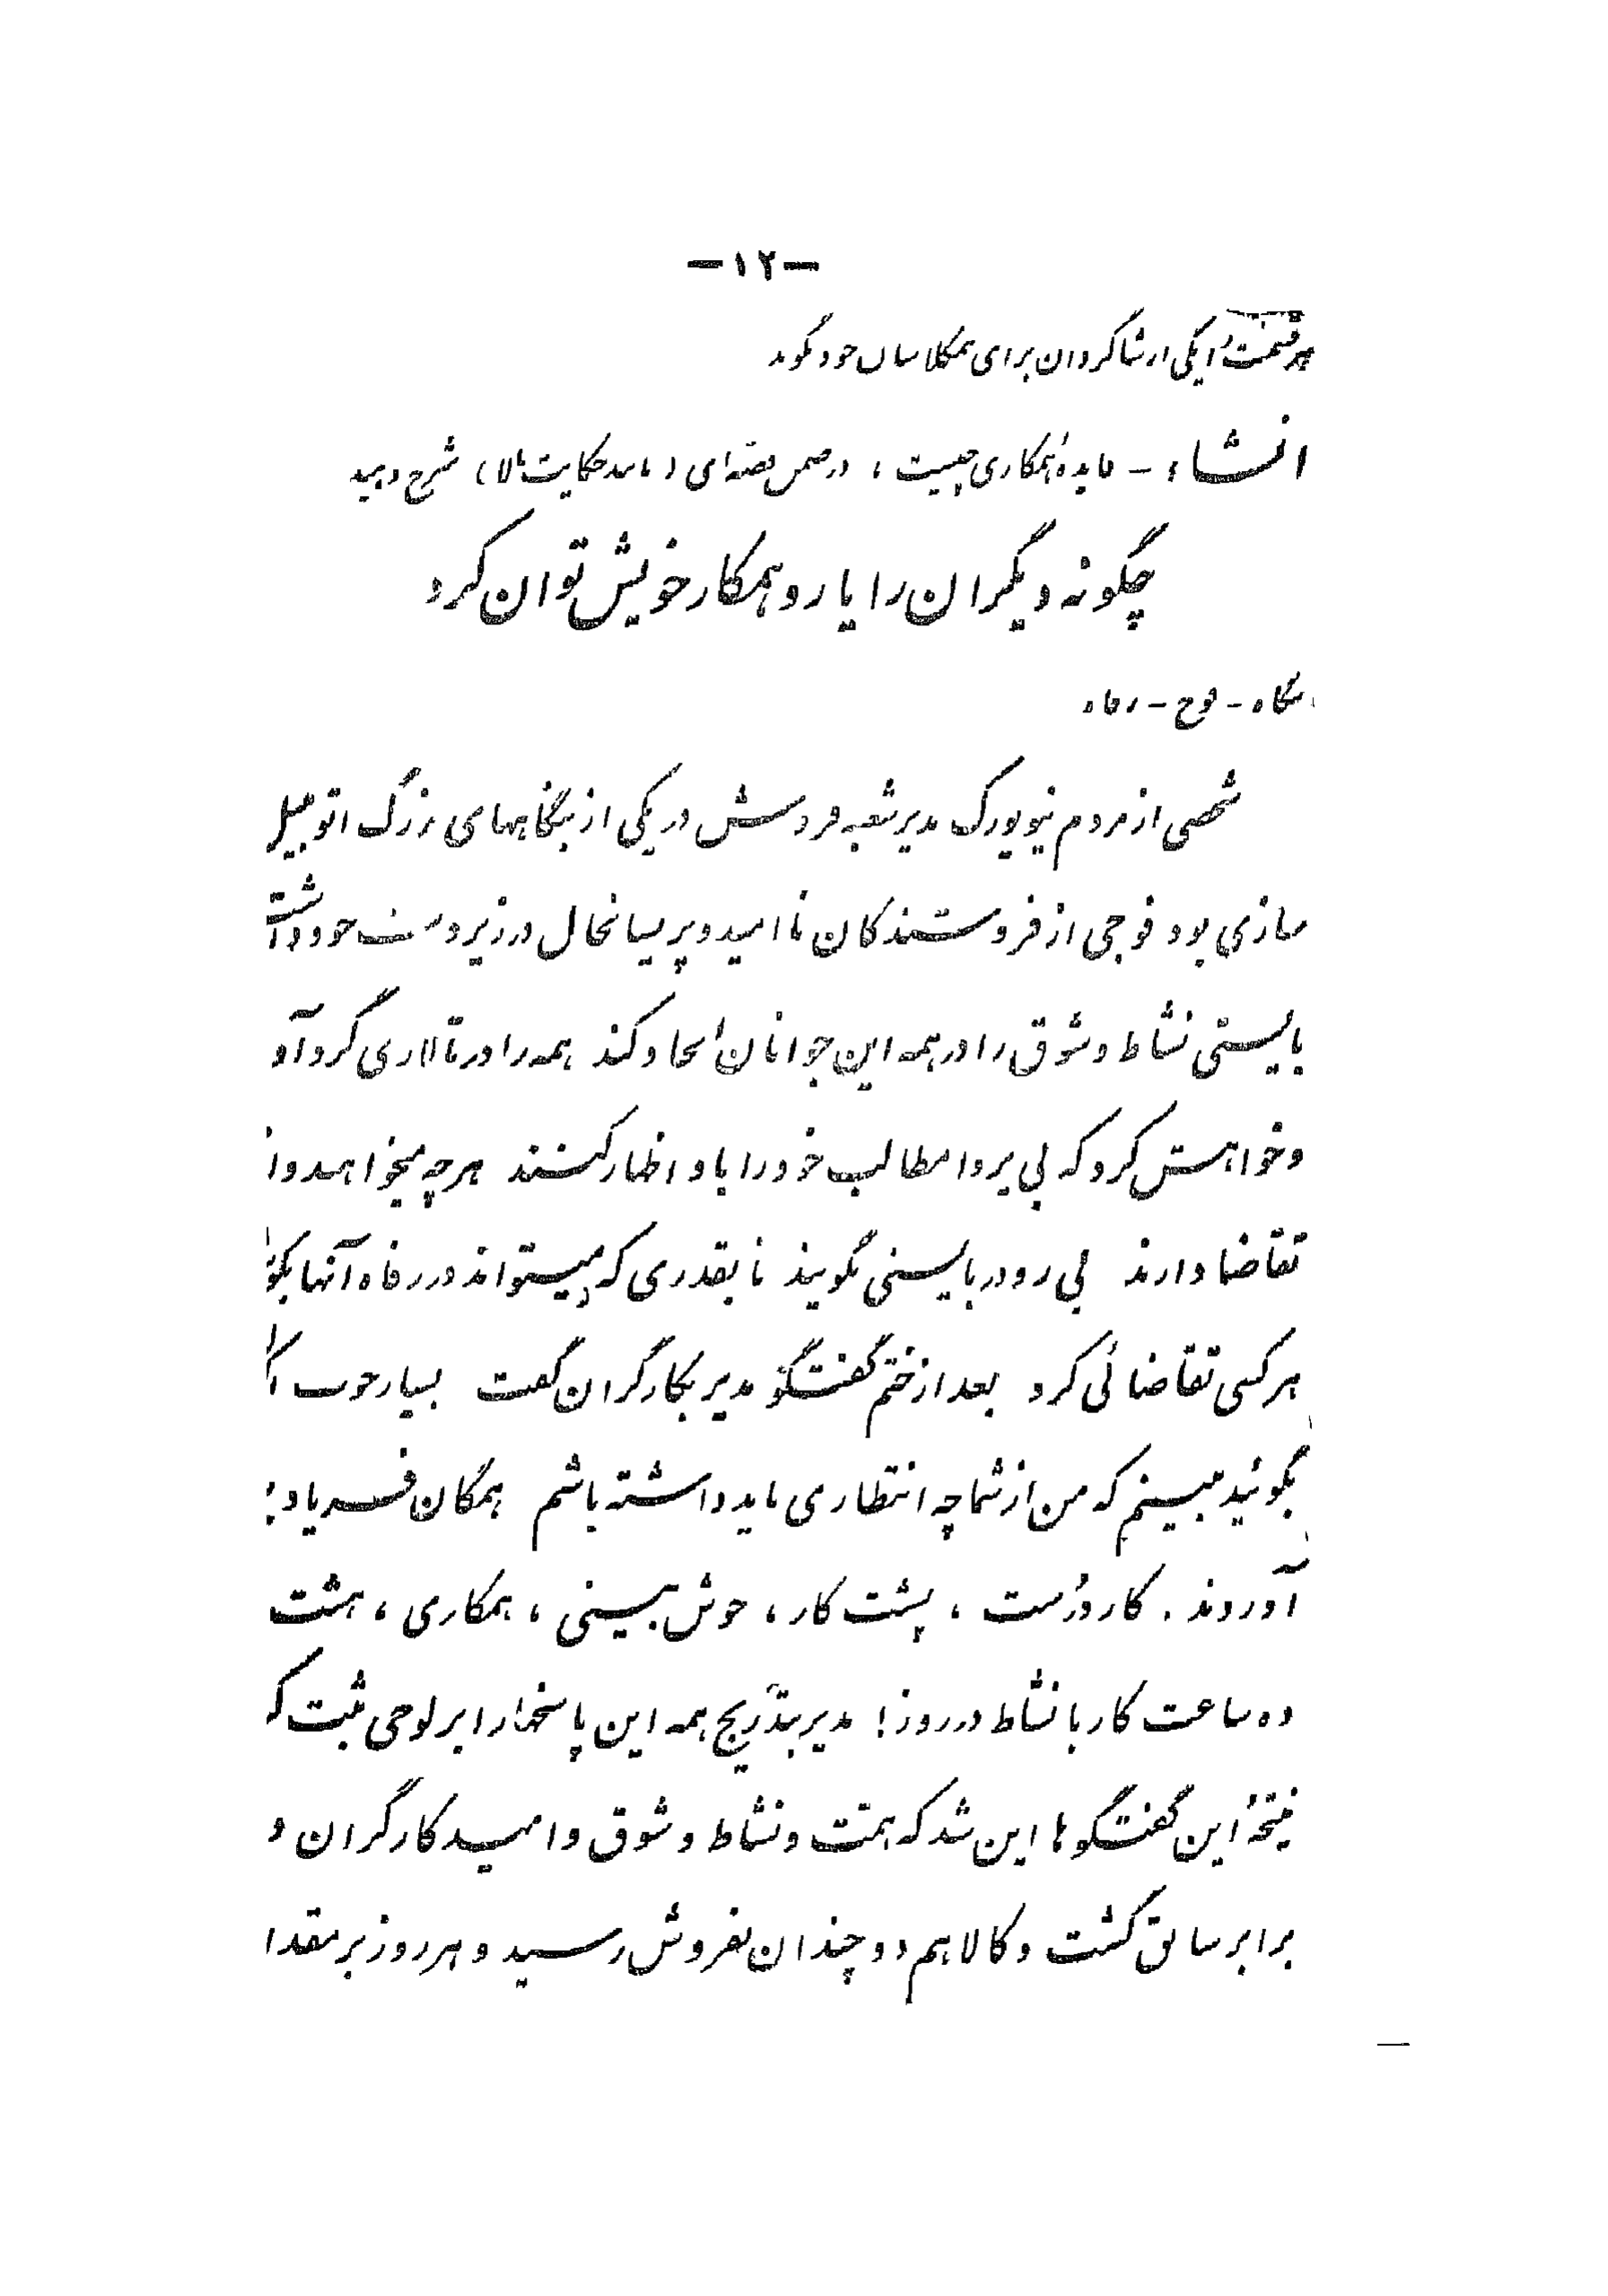 -۱۲-
هر قسمت را یکی از شاگردان برای همکلاسان خود بگوید
انشاء - فایدهٔ همکاری چیست ، در ضمن قصه‌ای (مانند حکایت بالا) شرح دهید
چگونه دیگران را یار و همکار خویش توان کرد
بنگاه - فوج - رفاه
شخصی از مردم نیویورک مدیر شعبه فروش در یکی از بنگاههای بزرگ اتومبیل
سازی بود فوجی از فروشندگان ناامید و پریشانحال در زیر دست خود داشت
بایستی نشاط و شوق را در همه این جوانان ایجاد کند همه را در تالاری گرد آو
و خواهش کرد که بی پروا مطالب خود را باو اظهار کنند هرچه میخواهند وا
تقاضا دارند بی رودربایستی بگویند تا بقدری که میتواند در رفاه آنها بکو
هر کسی تقاضائی کرد بعد از ختم گفتگو مدیر بکارگران گفت بسیار خوب ا
بگوئید ببینم که من از شما چه انتظاری باید داشته باشم همگان فریاد بر
آوردند . کار درست ، پشت کار ، خوش بینی ، همکاری ، هشت
ده ساعت کار با نشاط در روز ! مدیر بتدریج همه این پاسخها را بر لوحی ثبت کر
نتیجهٔ این گفتگوها این شد که همت و نشاط و شوق و امید کارگران د
برابر سابق گشت و کالا هم دو چندان بفروش رسید و هر روز بر مقدا